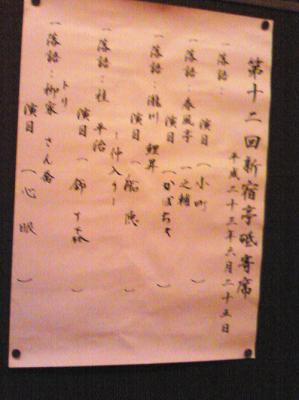 第十二回新宿亭砥寄席
平成二十三年六月二十五日
一落語:
演目(小町)
一落語:春風亭一之輔
演目(かぼちゃ)
一落語:瀧川鯉昇
演目(船徳)
ー仲入りー
一落語:桂平治
演目()
トリ
一落語:柳家さん喬
演目(心眼)